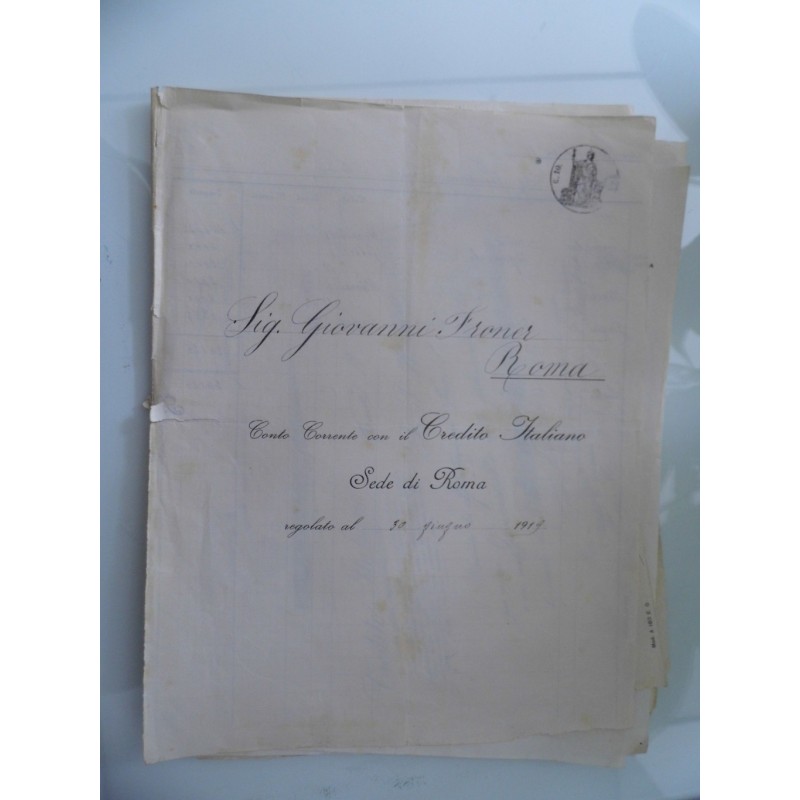 C. 10
Sig. Giovanni Froner
Roma
Conto Corrente con il Credito Italiano
Sede di Roma
regolato al 30 giugno 1919